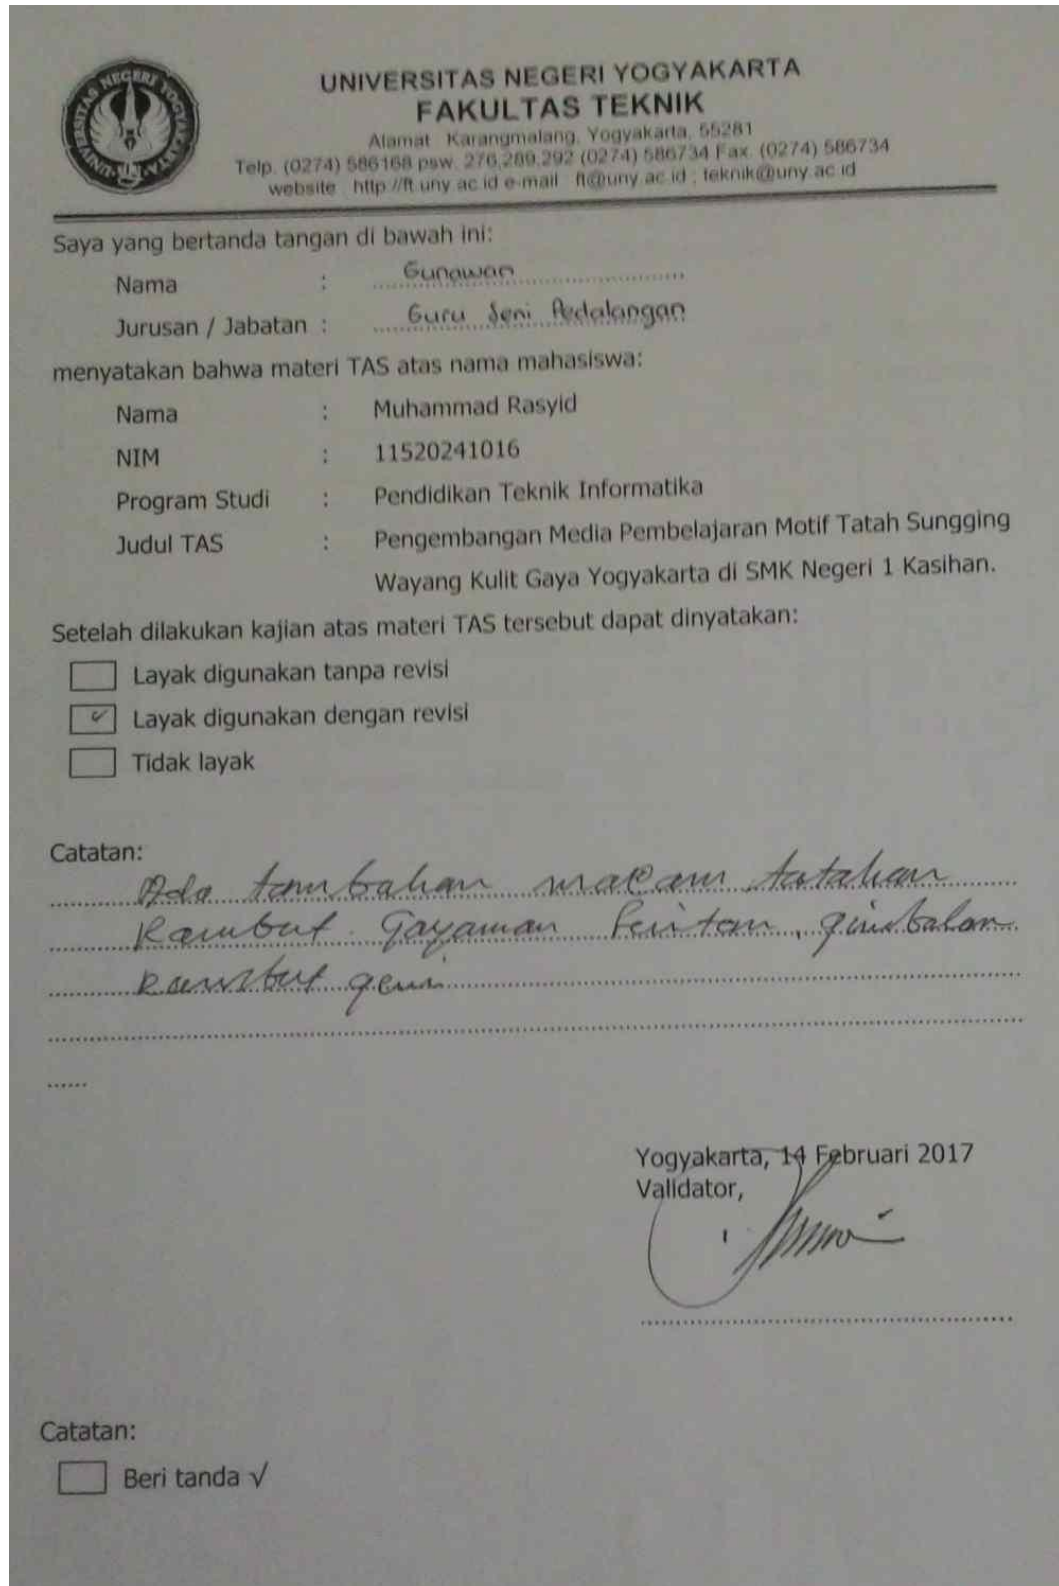 UNIVERSITAS NEGERI YOGYAKARTA
UNIVERSITAS NEGERI YOGYAKARTA
FAKULTAS TEKNIK
Alamat : Karangmalang, Yogyakarta, 55281
Telp. (0274) 586168 psw. 276,289,292 (0274) 586734 Fax. (0274) 586734
website : http://ft.uny.ac.id e-mail : ft@uny.ac.id ; teknik@uny.ac.id
Saya yang bertanda tangan di bawah ini:
Nama : Gunawan
Jurusan / Jabatan : Guru Seni Pedalangan
menyatakan bahwa materi TAS atas nama mahasiswa:
Nama : Muhammad Rasyid
NIM : 11520241016
Program Studi : Pendidikan Teknik Informatika
Judul TAS : Pengembangan Media Pembelajaran Motif Tatah Sungging
Wayang Kulit Gaya Yogyakarta di SMK Negeri 1 Kasihan.
Setelah dilakukan kajian atas materi TAS tersebut dapat dinyatakan:
Layak digunakan tanpa revisi
✓ Layak digunakan dengan revisi
Tidak layak
Catatan:
Ada tambahan macam tatahan
Rambut Gayaman gimbalan
rambut
Yogyakarta, 14 Februari 2017
Validator,
Catatan:
Beri tanda √